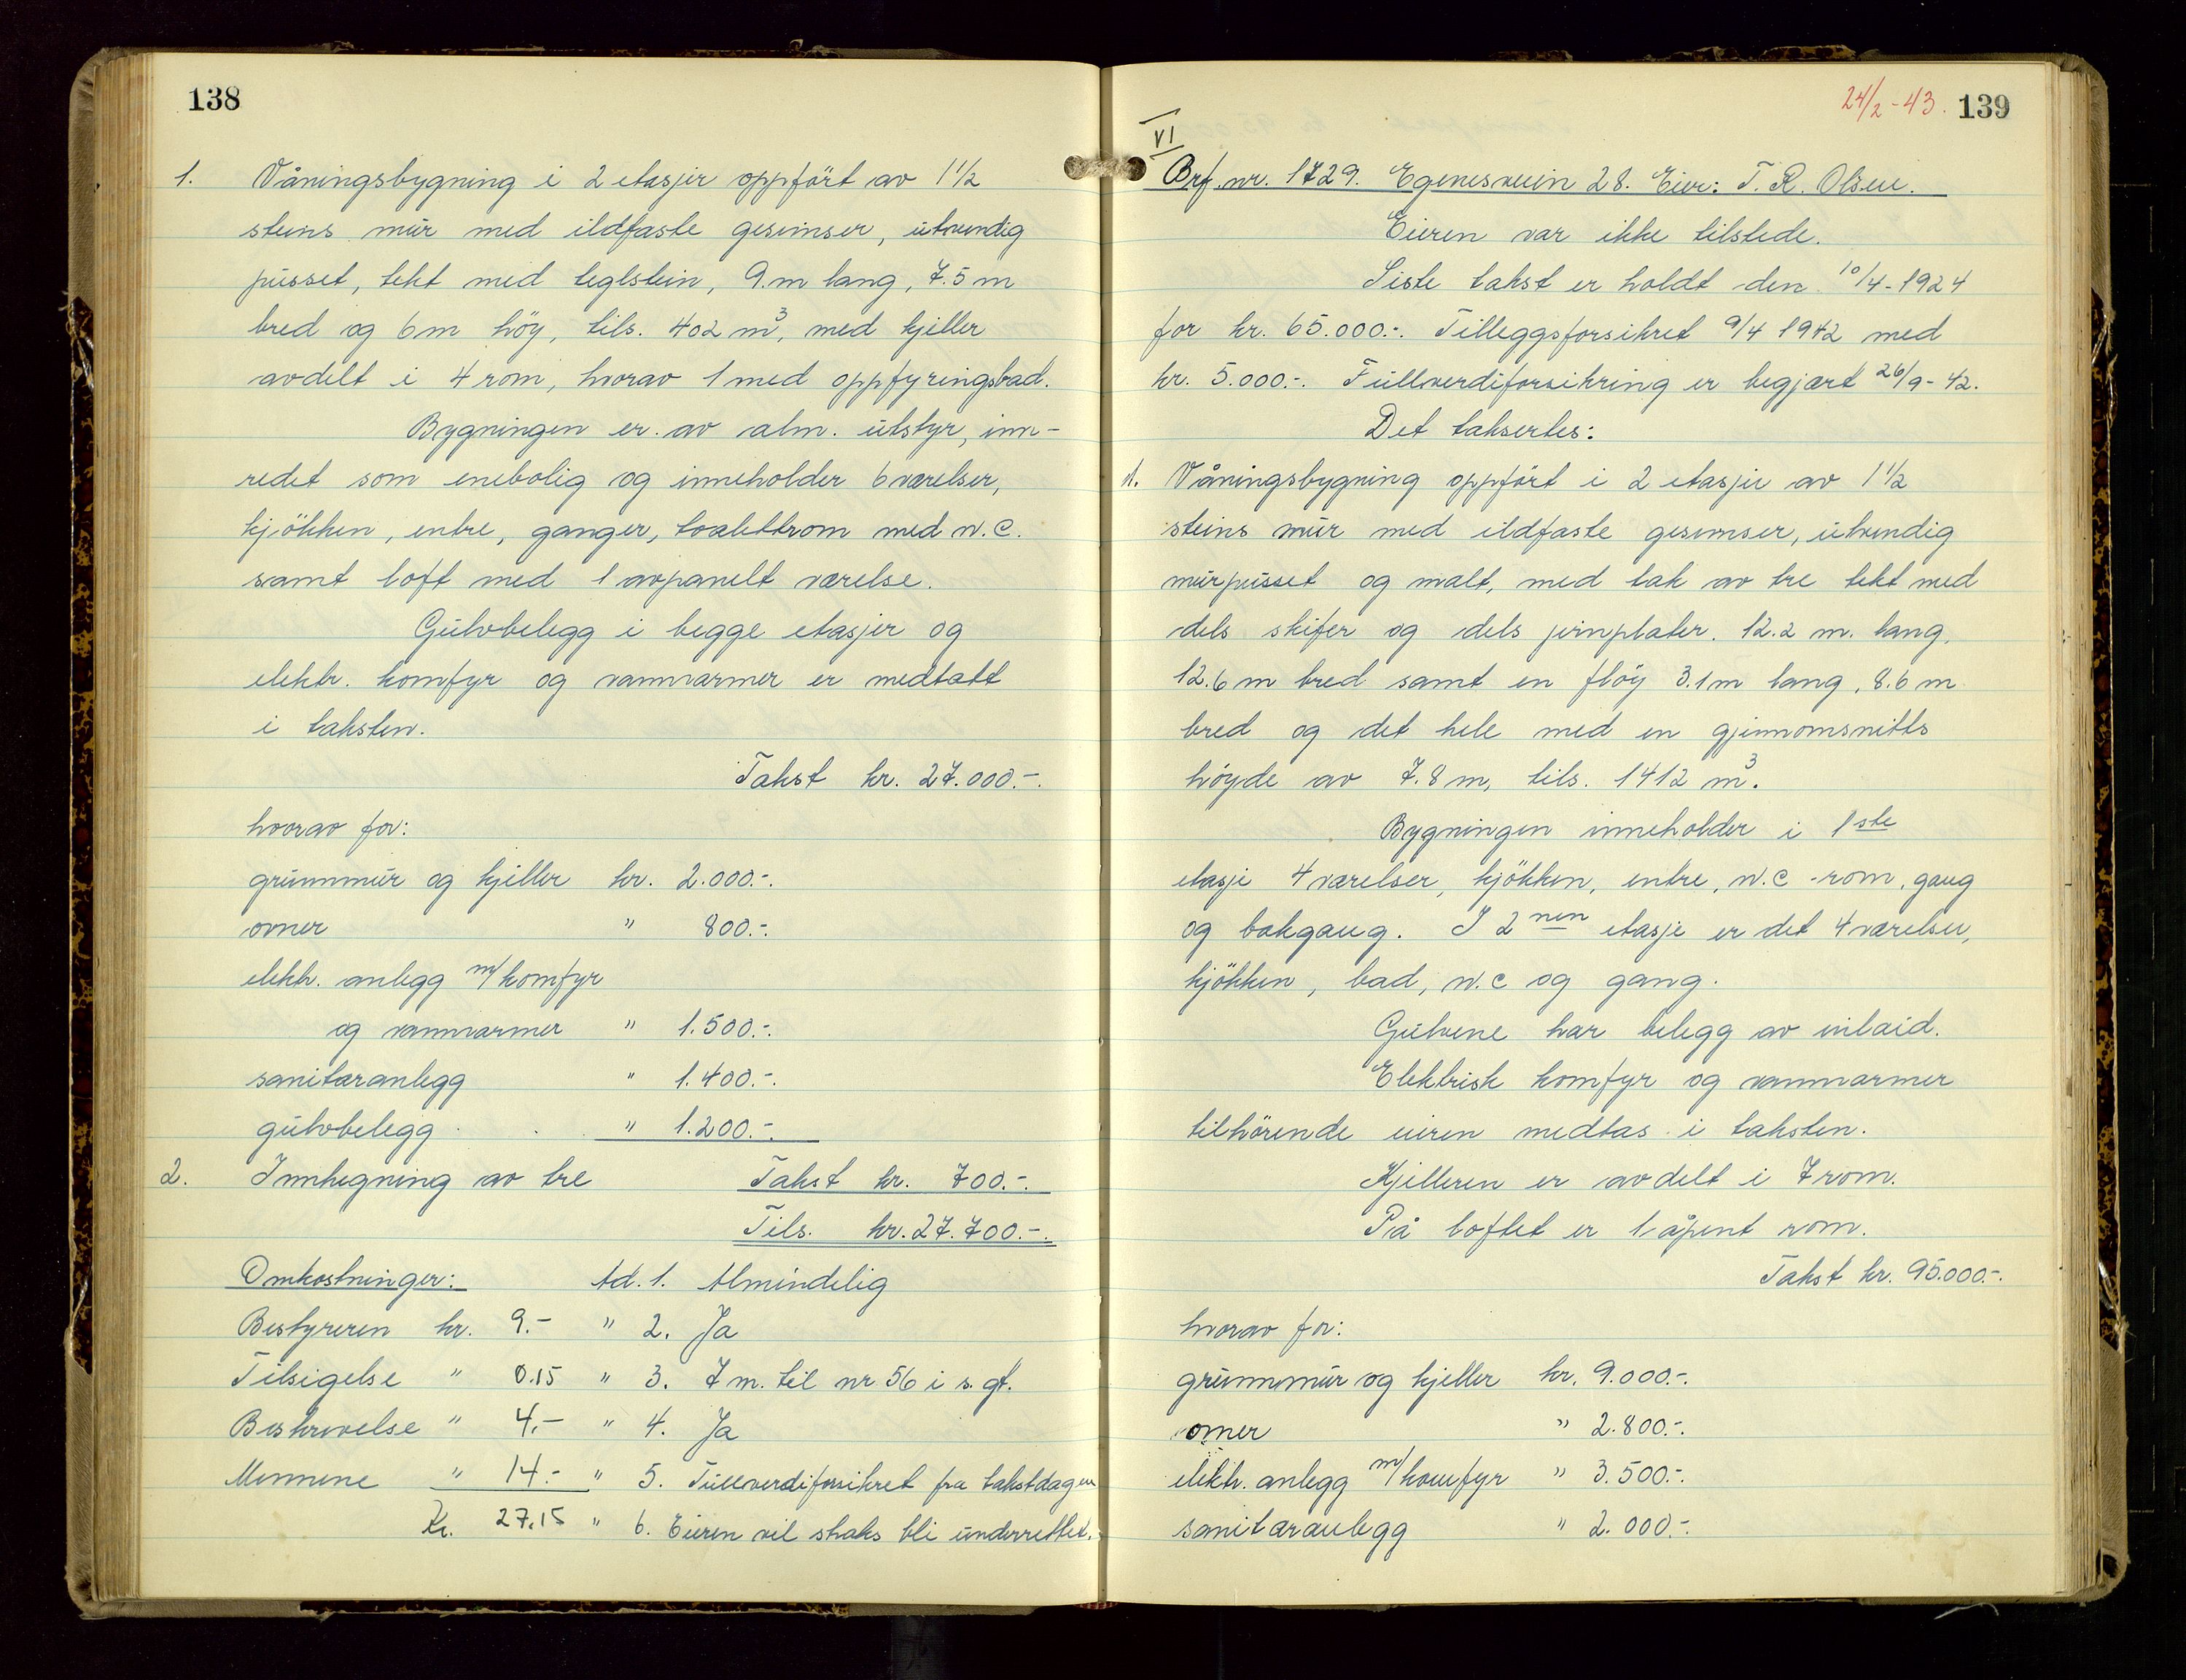 138
1. Våningsbygning i 2 etasjer oppført av 1 1/2
steins mur med ildfaste gesimser, utvendig
pusset, tekt med teglstein, 9.m lang, 7.5 m
bred og 6 m höy, tils. 402 m³, med kjeller
avdelt i 4 rom, hvorav 1 med oppfyringsbad.
Bygningen er av alm. utstyr, inn-
redet som enebolig og inneholder 6 værelser,
kjökken, entre, ganger, toalettrom med w.c.
samt loft med 1 avpanelt værelse.
Gulvbelegg i begge etasjer og
elektr. komfyr og vannvarmer er medtatt
i taksten.
Takst kr. 27.000.-.
hvorav for:
grunnmur og kjeller kr. 2.000.-.
ovner " 800.-.
elektr. anlegg m/komfyr
og vannvarmer " 1.500.-.
sanitæranlegg " 1.400.-.
gulvbelegg " 1.200.-.
2. Innhegning av tre Takst kr. 700.-.
Tils. kr. 27.700.-.
Omkostninger: Ad. 1. Almindelig
Bestyreren kr. 9.- " 2. Ja
Tilsigelse " 0.15 " 3. 7 m. til nr 56 i s. gt.
Beskrivelse " 4.- " 4. Ja
Mennene " 14.- " 5. Fullverdiforsikret fra takstdagen
Kr. 27.15 " 6. Eieren vil straks bli underrettet.
24/2-43. 139
VI
Brf. nr. 1729. Egenesveien 28. Eier: T. R. Olsen.
Eieren var ikke tilstede.
Siste takst er holdt den 10/4-1924
for kr. 65.000.-. Tilleggsforsikret 9/4 1942 med
kr. 5.000.-. Fullverdiforsikring er begjært 26/9-42.
Det taksertes:
1. Våningsbygning oppfört i 2 etasjer av 1 1/2
steins mur med ildfaste gesimser, utvendig
murpusset og malt, med tak av tre tekt med
dels skifer og dels jernplater. 12.2 m. lang,
12.6 m bred samt en flöy 3.1 m lang, 8.6 m
bred og det hele med en gjennomsnitts
höyde av 7.8 m, tils. 1412 m³.
Bygningen inneholder i 1ste
etasje 4 værelser, kjökken, entre, w.c-rom, gang
og bakgang. I 2nen etasje er det 4 værelser,
kjökken, bad, w.c og gang.
Gulvene har belegg av inlaid.
Elektrisk komfyr og vannvarmer
tilhörende eieren medtas i taksten.
Kjelleren er avdelt i 7 rom.
På loftet er 1 åpent rom.
Takst kr. 95.000.-.
hvorav for:
grunnmur og kjeller kr. 9.000.-.
ovner " 2.800.-.
elektr. anlegg m/komfyr " 3.500.-.
sanitæranlegg " 2.000.-.